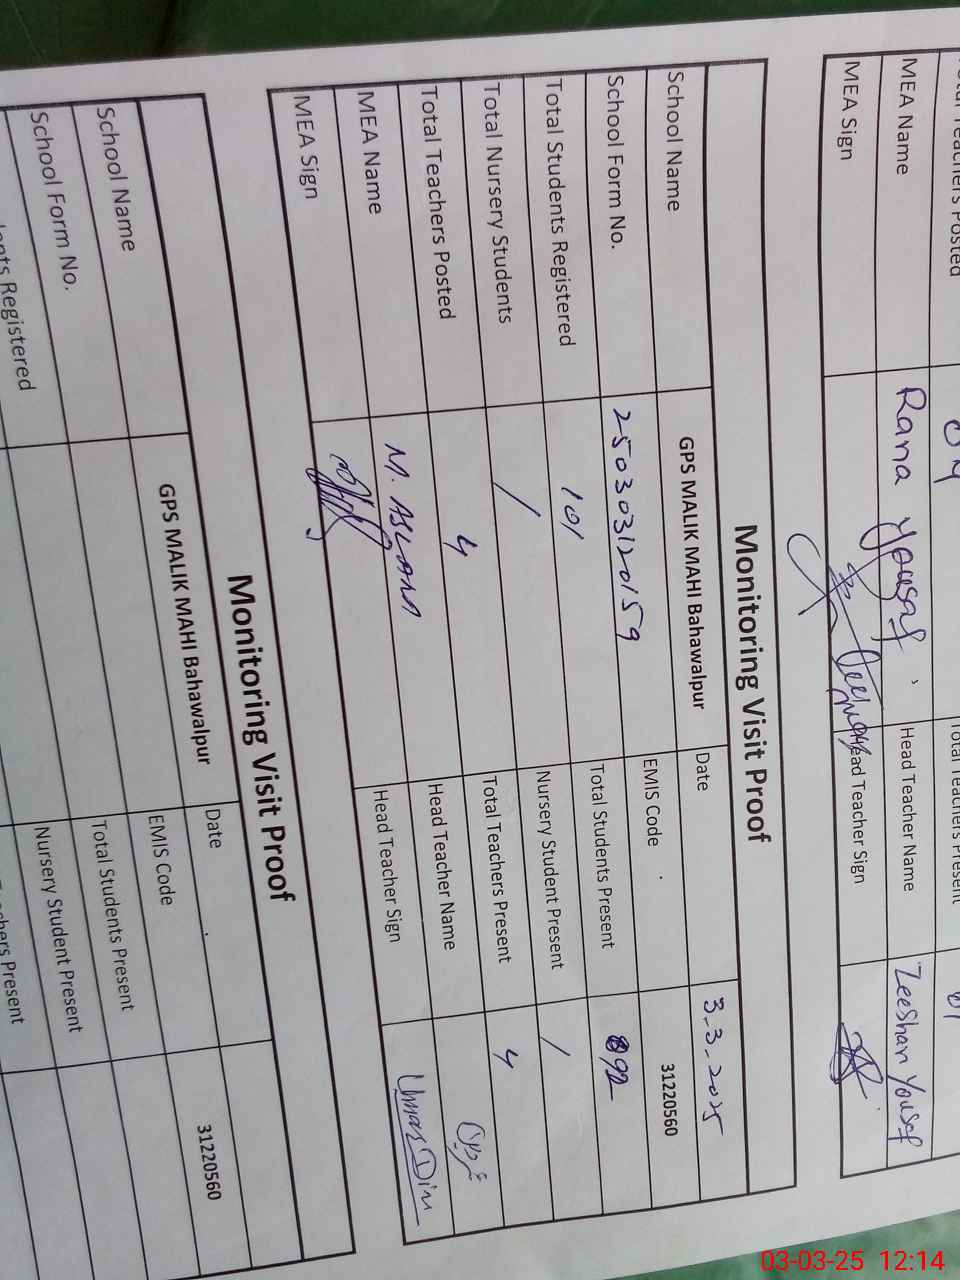 Total Teachers Posted 04 Total Teachers Present 01
MEA Name Rana Yousaf Head Teacher Name Zeeshan Yousaf
MEA Sign Head Teacher Sign
Monitoring Visit Proof
School Name GPS MALIK MAHI Bahawalpur Date 3.3.2025
School Form No. 25030312 0159 EMIS Code 31220560
Total Students Registered 101 Total Students Present 92
Total Nursery Students / Nursery Student Present /
Total Teachers Posted 4 Total Teachers Present 4
MEA Name M. ASLAM Head Teacher Name
MEA Sign Head Teacher Sign Umar Din
Monitoring Visit Proof
School Name GPS MALIK MAHI Bahawalpur Date
School Form No. EMIS Code 31220560
ents Registered Total Students Present
Nursery Student Present
chers Present
03-03-25 12:14